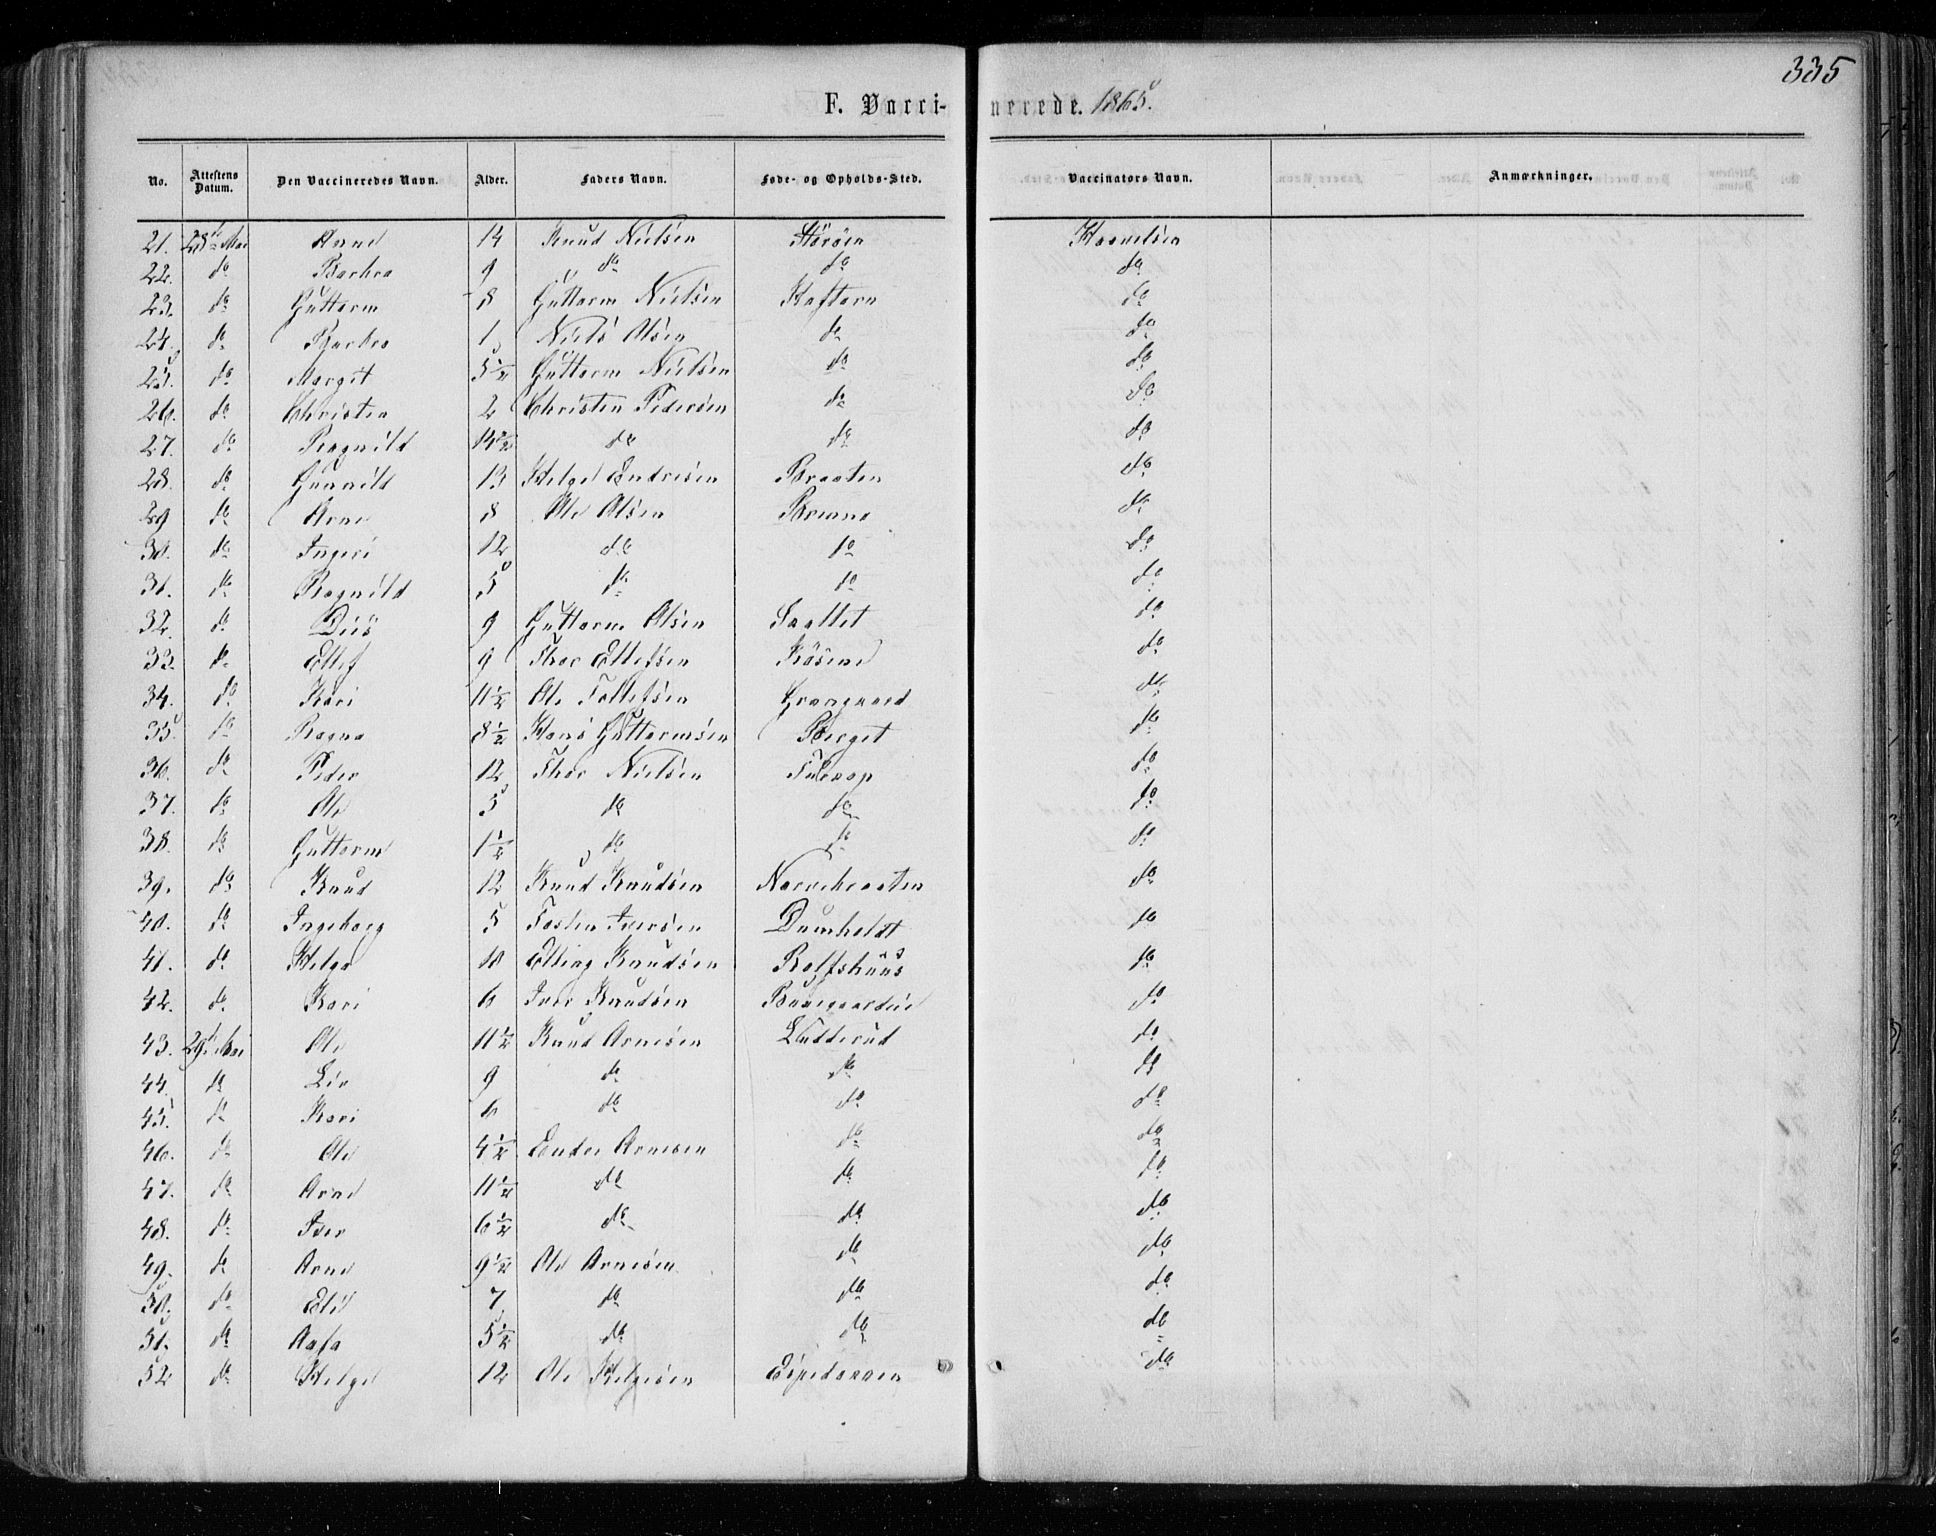 335
F. Vaccinerede. 1865.
No. Attestens Datum. Den Vaccineredes Navn. Alder. Faders Navn. Føde- og Opholds-Sted. Vaccinators Navn. Anmærkninger.
21. 28de Mai Anne 14 Knud Nielsen
22. do Barbra 9 do do do
23. do Guttorm 8 Guttorm Nielsen do
24. do Barbro 1 Niels Olsen do do
25. do Margit 5½ Guttorm Nielsen do do
26. do Christen 2 Christen Pedersen do do
27. do Ragnild 14½ do do do
28. do Gunnild 13 Helge Endresen Braaten do
29 do Arne 8 Ole Olsen do
30. do Ingeri 12 do do do
31. do Ragnild 5 do do do
32. do 9 Guttorm Olsen do
33. do Ellef 9 Thor Ellefsen do
34. do Kari 11½ Ole Tollefsen do
35. do Ragna 8½ Hans Guttormsen Berget do
36. do Peder 12 Thor Nielsen do
37. do Ole 5 do do do
38. do Guttorm 1½ do do do
39. do Knud 12 Knud Knudsen do
40. do Ingeborg 5 Tosten Iversen do
41. do Helga 10 Elling Knudsen Rolfshuus do
42. do Kari 6 Iver Knudsen do
43. 29de Mai Ole 11½ Knud Arnesen do
44. do Liv 9 do do do
45. do Kari 6 do do do
46. do Ole 4½ Ender Arnesen do do
47. do Arne 11½ do do do
48. do Iver 6½ do do do
49. do Arne 9½ Ole Arnesen do do
50. do Eli 7 do do do
51. do Aasa 5½ do do do
52 do Helge 12 Ole Helgesen do